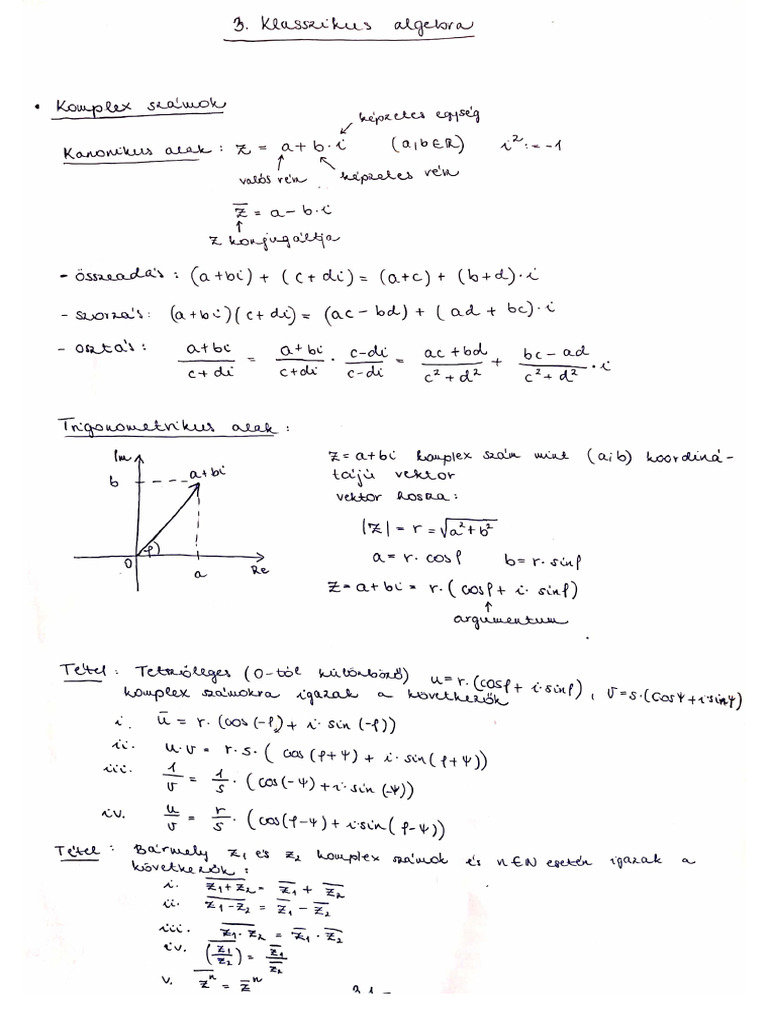 3. Klasszikus algebra
• Komplex számok
képzetes egység
Kanonikus alak : z = a + b·i (a,b∈ℝ) i² := -1
valós rész képzetes rész
z̅ = a - b·i
z konjugáltja
- összeadás : (a+bi) + (c+di) = (a+c) + (b+d)·i
- szorzás : (a+bi)(c+di) = (ac - bd) + (ad + bc)·i
- osztás : (a+bi)/(c+di) = (a+bi)/(c+di) · (c-di)/(c-di) = (ac+bd)/(c²+d²) + (bc-ad)/(c²+d²) · i
Trigonometrikus alak :
Im
b
a+bi
φ
0
a
Re
z = a+bi komplex szám mint (a;b) koordiná-
tájú vektor
vektor hossza :
|z| = r = √(a²+b²)
a = r·cosφ b = r·sinφ
z = a+bi = r·(cosφ + i·sinφ)
argumentum
Tétel : Tetszőleges (0-tól különböző) u = r·(cosφ + i·sinφ), v = s·(cosψ + i·sinψ)
komplex számokra igazak a következők
i. u̅ = r·(cos(-φ) + i·sin(-φ))
ii. u·v = r·s·(cos(φ+ψ) + i·sin(φ+ψ))
iii. 1/v = 1/s · (cos(-ψ) + i·sin(-ψ))
iv. u/v = r/s · (cos(φ-ψ) + i·sin(φ-ψ))
Tétel : Bármely z₁ és z₂ komplex számok és n∈ℕ esetén igazak a
következők :
i. \overline{z₁+z₂} = \overline{z₁} + \overline{z₂}
ii. \overline{z₁-z₂} = \overline{z₁} - \overline{z₂}
iii. \overline{z₁·z₂} = \overline{z₁} · \overline{z₂}
iv. \overline{(z₁/z₂)} = \overline{z₁}/\overline{z₂}
v. \overline{zⁿ} = \overline{z}ⁿ